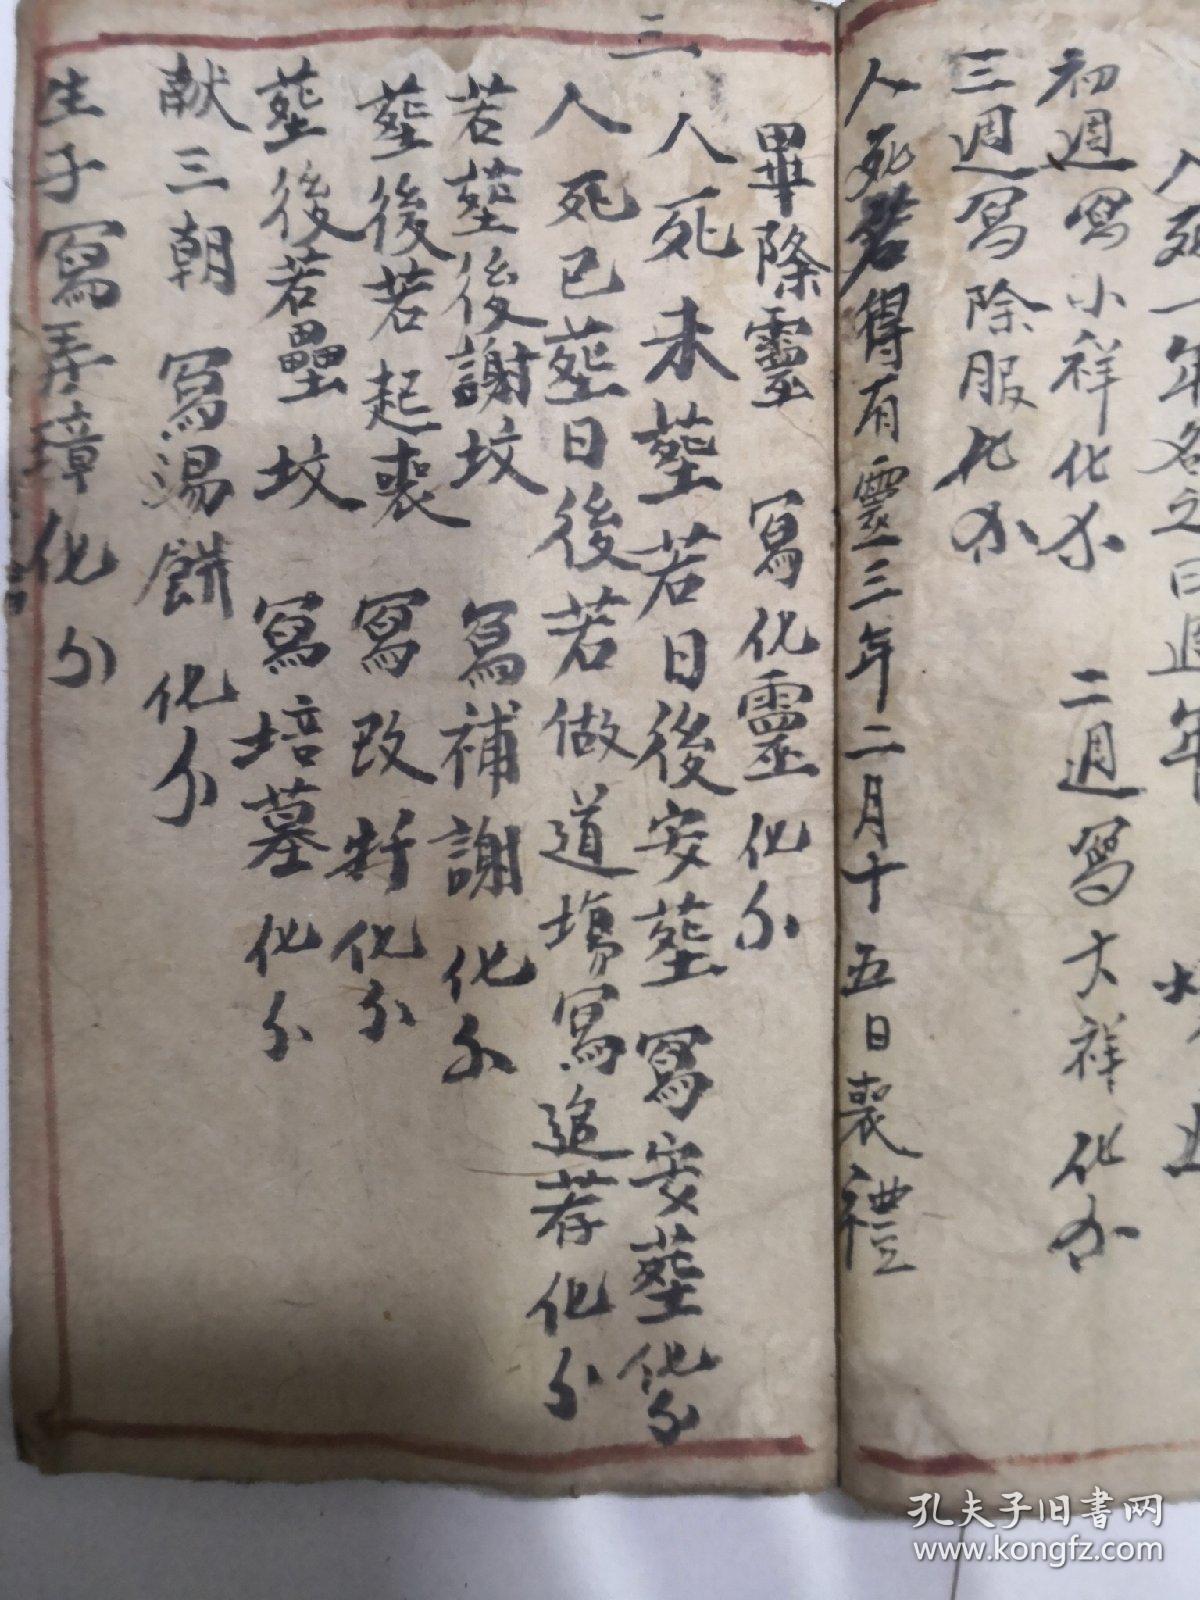 人死一年名之曰週年
初週寫小祥化分 二週寫大祥化分
三週寫除服化分
人死若得有靈三年二月十五日喪禮
畢除靈 寫化靈化分
三
人死未塟若日後安塟寫安塟化分
人死已塟日後若做道塲寫追荐化分
若塟後謝坟 寫補謝化分
塟後若起喪 寫改新化分
塟後若壘坟 寫培墓化分
献三朝 寫湯餅化分
生子寫弄璋化分
孔夫子旧書网
www.kongfz.com